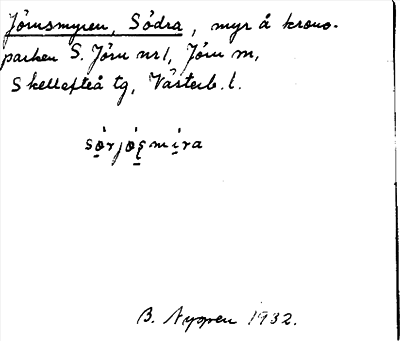 Jörnsmyren, Södra, myr å krono-
parken S. Jörn nr 1, Jörn m,
Skellefteå tg, Västerb. l.
B. Nygren 1932.